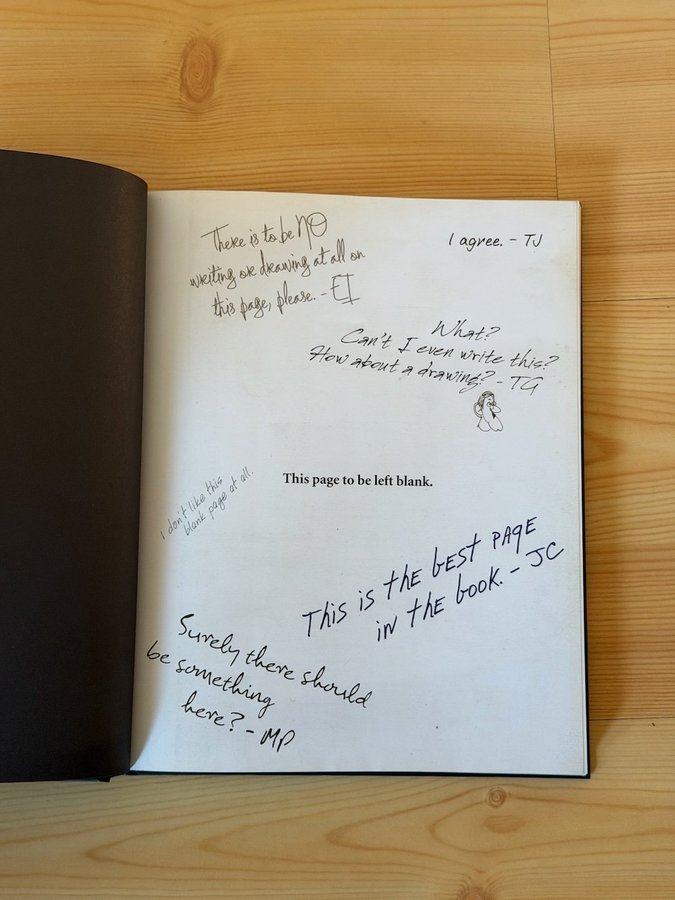 There is to be NO
writing or drawing at all on
this page, please. - EI
I agree. - TJ
What?
Can't I even write this?
How about a drawing? - TG
This page to be left blank.
I don't like this
blank page at all.
This is the best page
in the book. - JC
Surely there should
be something
here? - MP